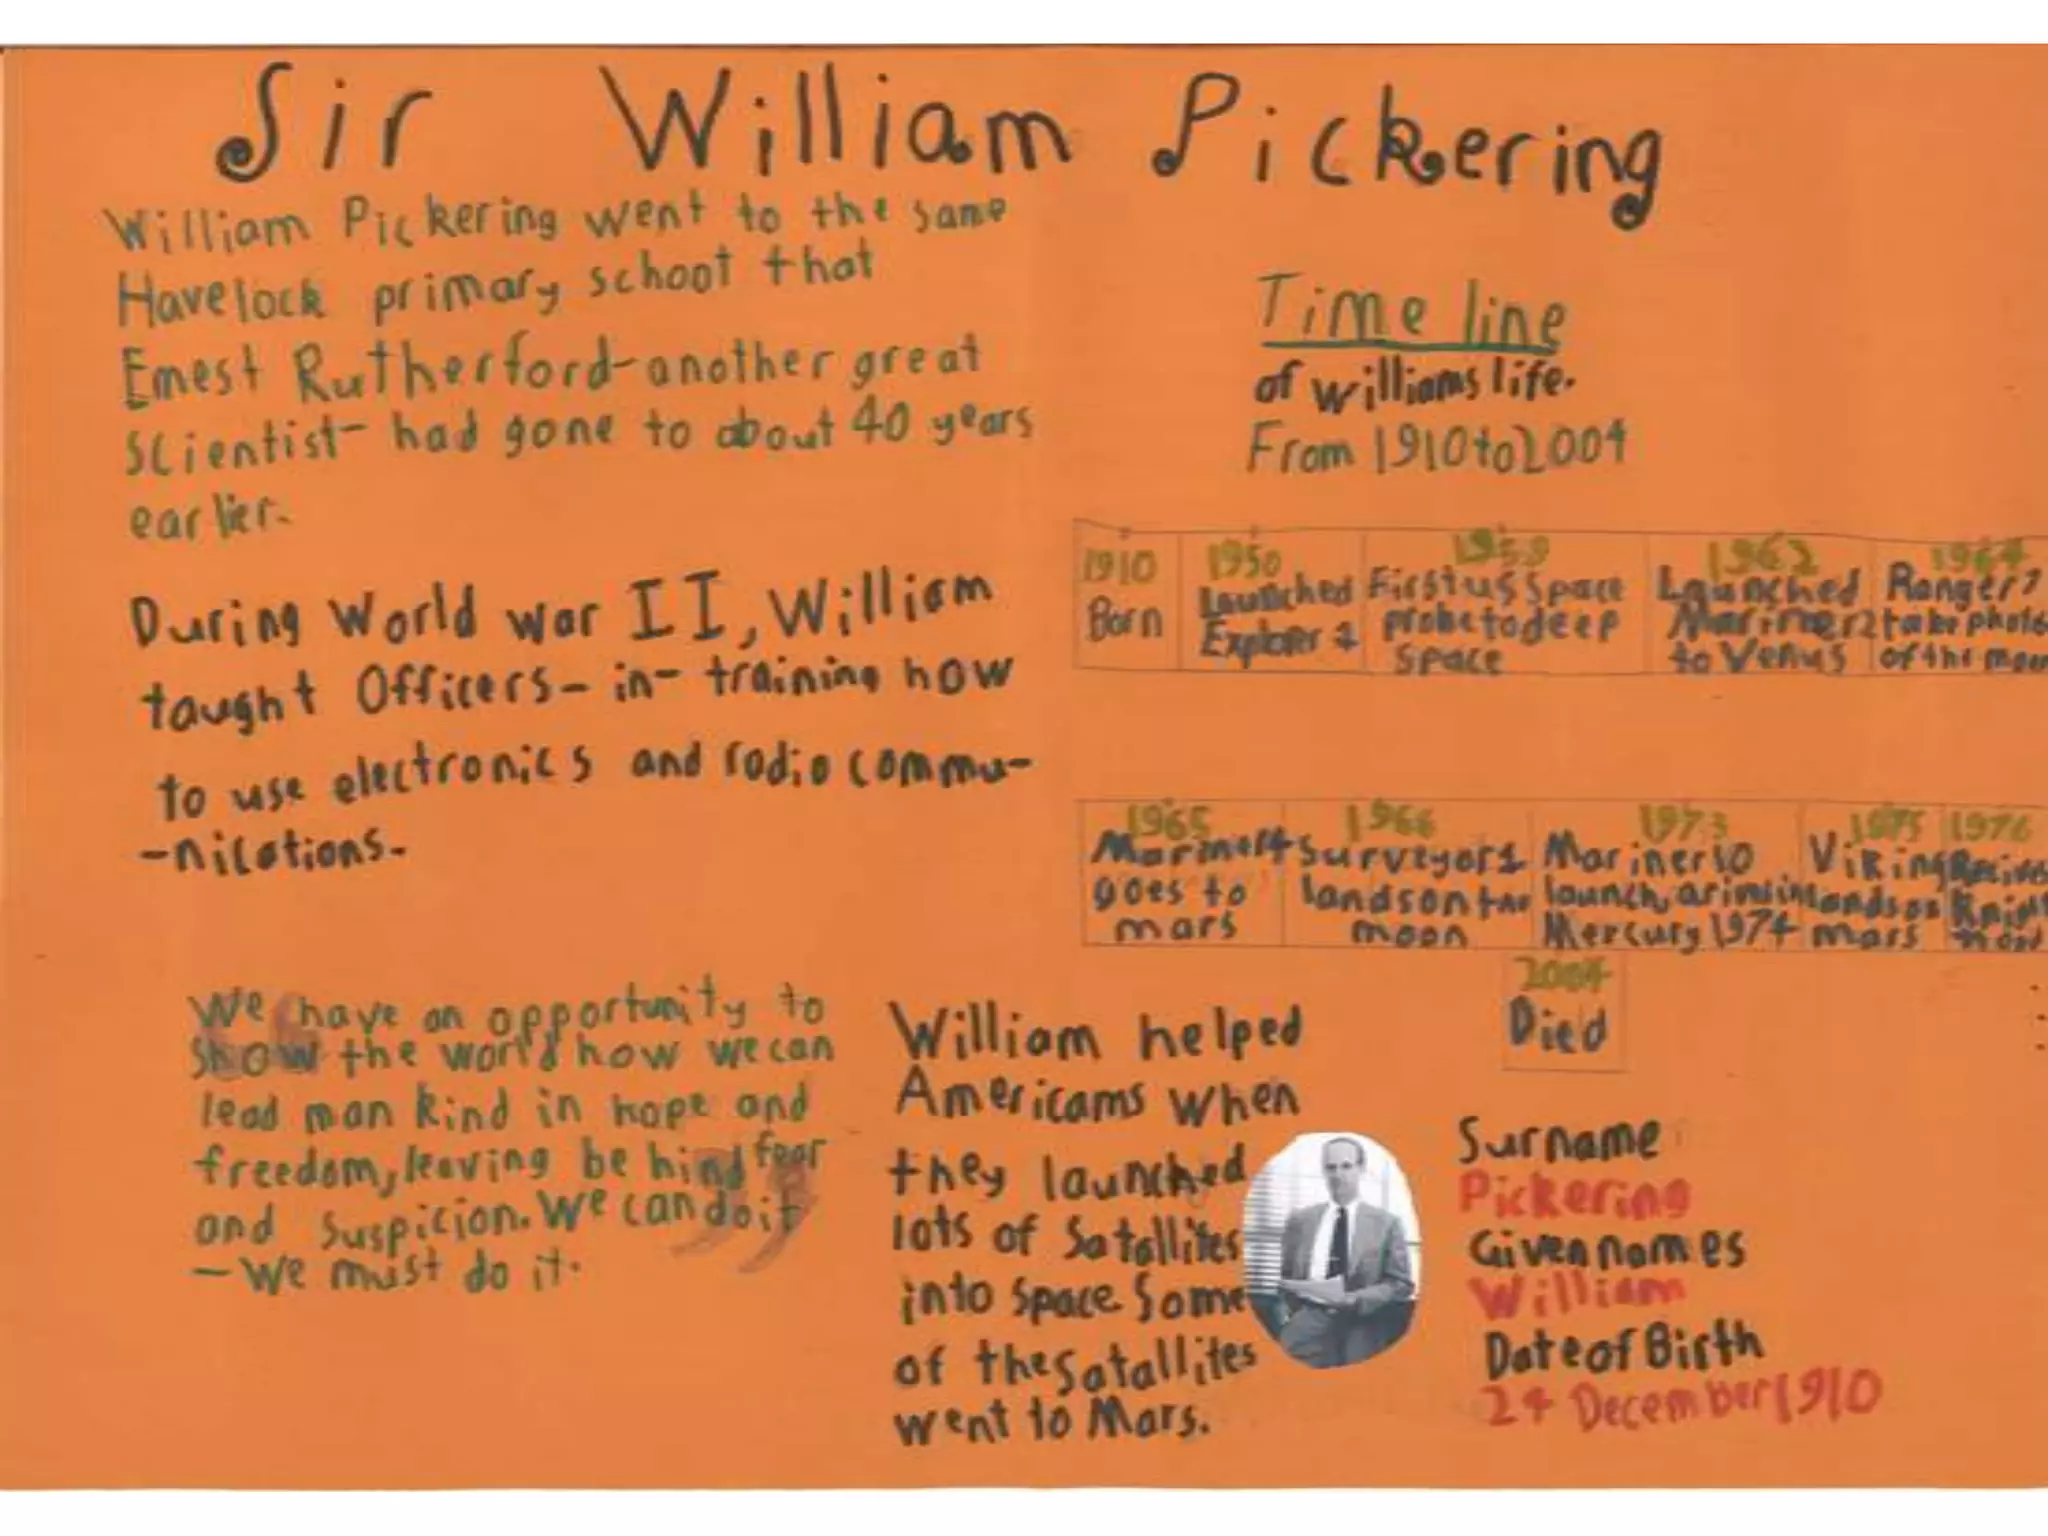 Sir William Pickering
William Pickering went to the same
Havelock primary school that
Ernest Rutherford-another great
scientist- had gone to about 40 years
earlier.
During World war II, William
taught Officers-in-training how
to use electronics and radio commu-
-nications.
We have an opportunity to
show the world how we can
lead man kind in hope and
freedom, leaving be hind fear
and suspicion. We can do it
-We must do it.
Time line
of williams life.
From 1910 to 2004
1910
Born
1950
Launched
Explorer 1
1959
First us space
probe to deep
space
1962
Launched
Mariner 2
to Venus
1964
Ranger 7
take photo
of the moon
1965
Mariner 4
goes to
mars
1966
Surveyor 1
lands on the
moon
1973
Mariner 10
launch, arivin
Mercury 1974
1975
Viking
lands on
mars
1976
Recives
Knight
hood
2004
Died
William helped
Americams when
they launched
lots of Satallites
into space Some
of the Satallites
went to Mars.
Surname
Pickering
Given nam es
William
Date of Birth
24 December 1910